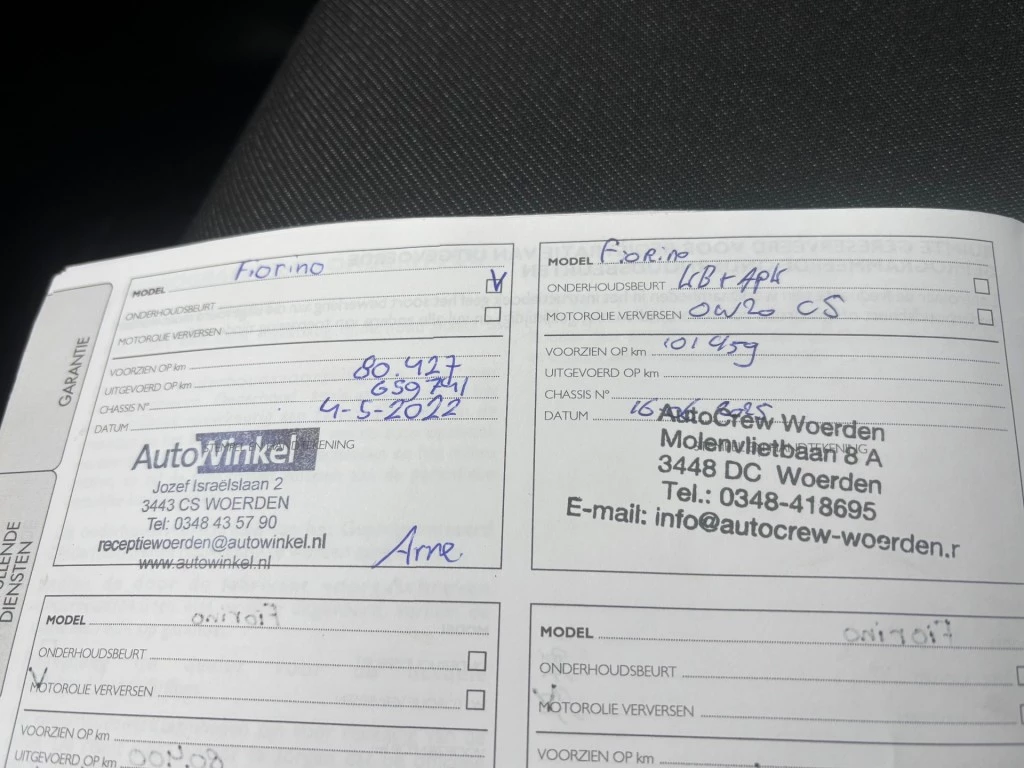 GARANTIE
MODEL Fiorino V
ONDERHOUDSBEURT
MOTOROLIE VERVERSEN
VOORZIEN OP km 80.427
UITGEVOERD OP km 659741
CHASSIS N° 4-5-2022
DATUM
AutoWinkel
Jozef Israëlslaan 2
3443 CS WOERDEN
Tel: 0348 43 57 90
receptiewoerden@autowinkel.nl
www.autowinkel.nl
Arne
MODEL Fiorino
ONDERHOUDSBEURT KB + Apk
MOTOROLIE VERVERSEN 0W20 CS
VOORZIEN OP km 101459
UITGEVOERD OP km
CHASSIS N°
DATUM
AutoCrew Woerden
Molenvlietbaan 8 A
3448 DC Woerden
Tel.: 0348-418695
E-mail: info@autocrew-woerden.r
DIENSTEN
MODEL
ONDERHOUDSBEURT
MOTOROLIE VERVERSEN
VOORZIEN OP km
UITGEVOERD OP km
MODEL
ONDERHOUDSBEURT
MOTOROLIE VERVERSEN
VOORZIEN OP km